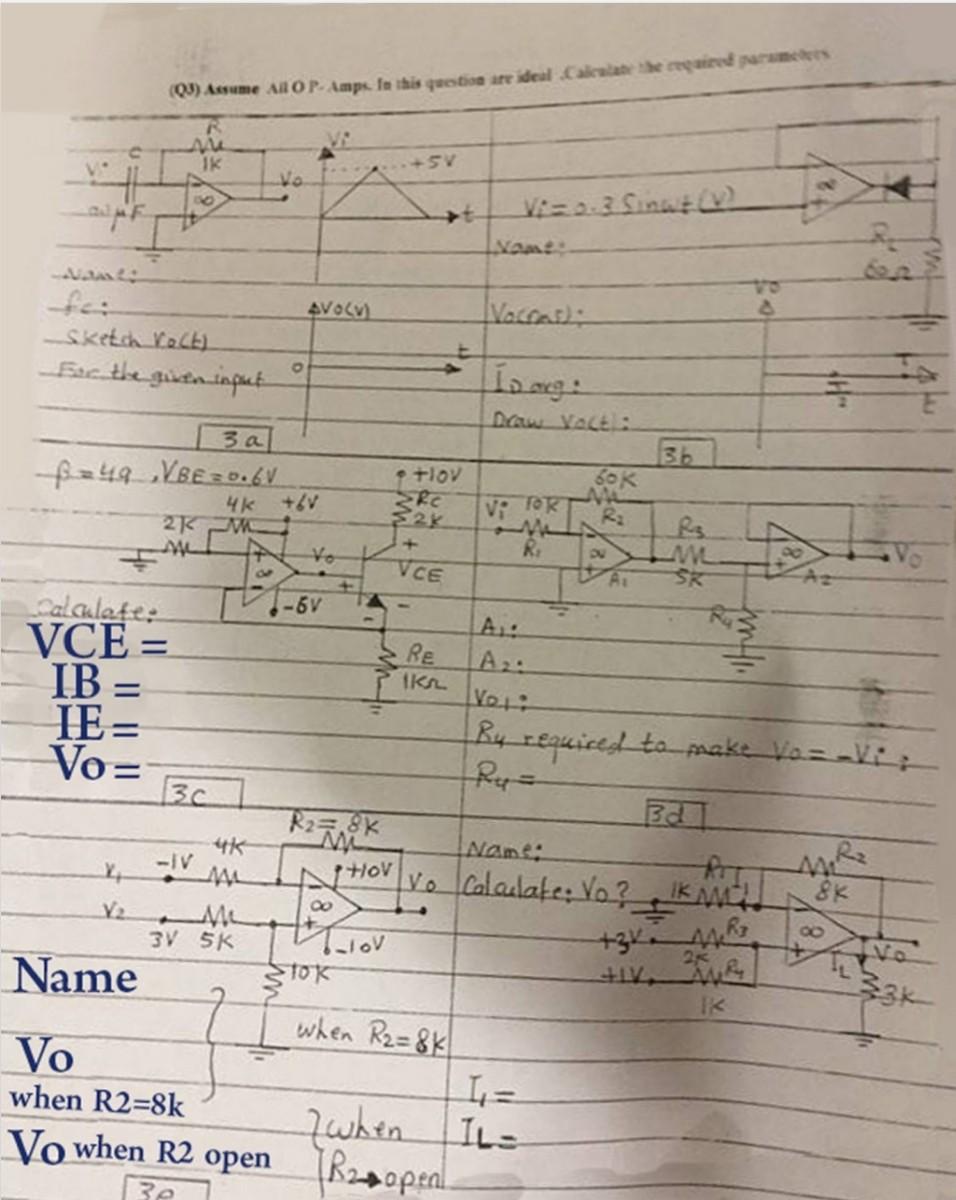 (Q3) Assume All O P- Amps. In this question are ideal .Calculate the required parameters
R
1K
C
Vi
∞
Vo
Vi
+5V
t
Name:
fc:
Sketch Vo(t)
For the given input
ΔVo(V)
0
t
3a
Vi=0.3 Sinwt (V)
∞
RL
60Ω
Name:
Vo(rms):
ID avg:
Draw Vo(t):
Vo
T/2
T
t
3b
β=49 ,VBE=0.6V
+10V
RC
2K
4K
+6V
2K
∞
Vo
-6V
+
VCE
-
RE
1KΩ
Calculate:
VCE =
IB =
IE =
Vo =
3c
Vi
10K
R1
60K
R2
∞
A1
R3
5K
∞
A2
Vo
R4
A1:
A2:
Vo1:
R4 required to make Vo = -Vi :
R4 =
3d
R2= 8K
4K
V1
-1V
+10V
∞
Vo
V2
3V
5K
-10V
10K
when R2=8K
Name
Vo
when R2=8k
Vo when R2 open
when
R2→open
3e
Name:
Calculate: Vo ?
R1
1K
I1
R2
8K
∞
+3V
R3
2K
+1V
R4
1K
Vo
IL
3K
I1=
IL=